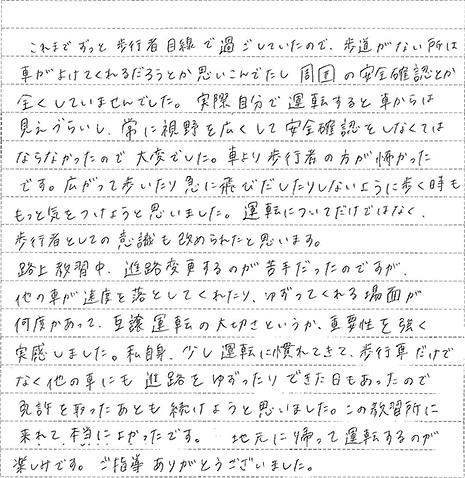 これまでずっと歩行者目線で過ごしていたので、歩道がない所は
車がよけてくれるだろうとか思いこんでたし 周囲の安全確認とか
全くしていませんでした。実際自分で運転すると車からは
見えづらいし、常に視野を広くして安全確認をしなくては
ならなかったので大変でした。車より歩行者の方が怖かった
です。広がって歩いたり急に飛びだしたりしないように歩く時も
もっと気をつけようと思いました。運転についてだけではなく、
歩行者としての意識も改められたと思います。
路上教習中、進路変更するのが苦手だったのですが、
他の車が速度を落としてくれたり、ゆずってくれる場面が
何度かあって、互譲運転の大切さというか、重要性を強く
実感しました。私自身、少し運転に慣れてきて、歩行車だけで
なく他の車にも進路をゆずったりできた日もあったので
免許を取ったあとも続けようと思いました。この教習所に
来れて本当によかったです。 地元に帰って運転するのが
楽しみです。ご指導ありがとうございました。